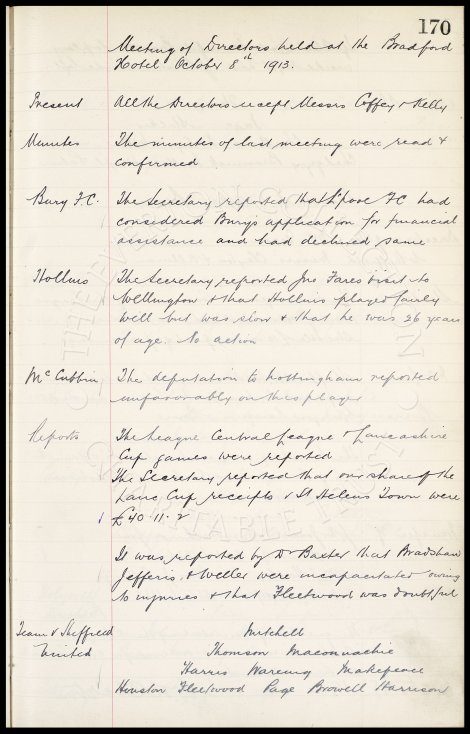 170
Meeting of Directors held at the Bradford
Hotel October 8th 1913.
Present All the Directors except Messrs Coffey & Kelly
Minutes The minutes of last meeting were read &
confirmed
Bury F.C. The Secretary reported that L'pool FC had
considered Bury's application for financial
assistance and had declined same
Hollins The Secretary reported Jno Fares visit to
Wellington & that Hollins played fairly
well but was slow & that he was 26 years
of age. No action
McCubbin The deputation to Nottingham reported
unfavorably on this player
Reports The League Central League & Lancashire
Cup games were reported
The Secretary reported that our share of the
Lanc Cup receipts v St Helens Town were
£40-11-2
It was reported by Dr Baxter that Bradshaw
Jefferis & Weller were incapacitated owing
to injuries & that Fleetwood was doubtful
Team v Sheffield Mitchell
United Thomson Maconnachie
Harris Wareing Makepeace
Houston Fleetwood Page Browell Harrison